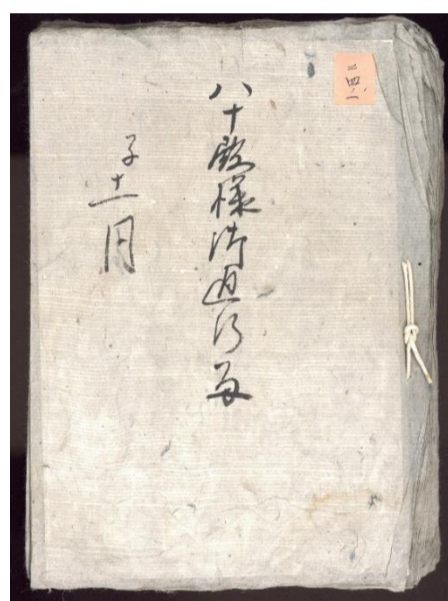 二四一
八十殿様御通行留
子十一月